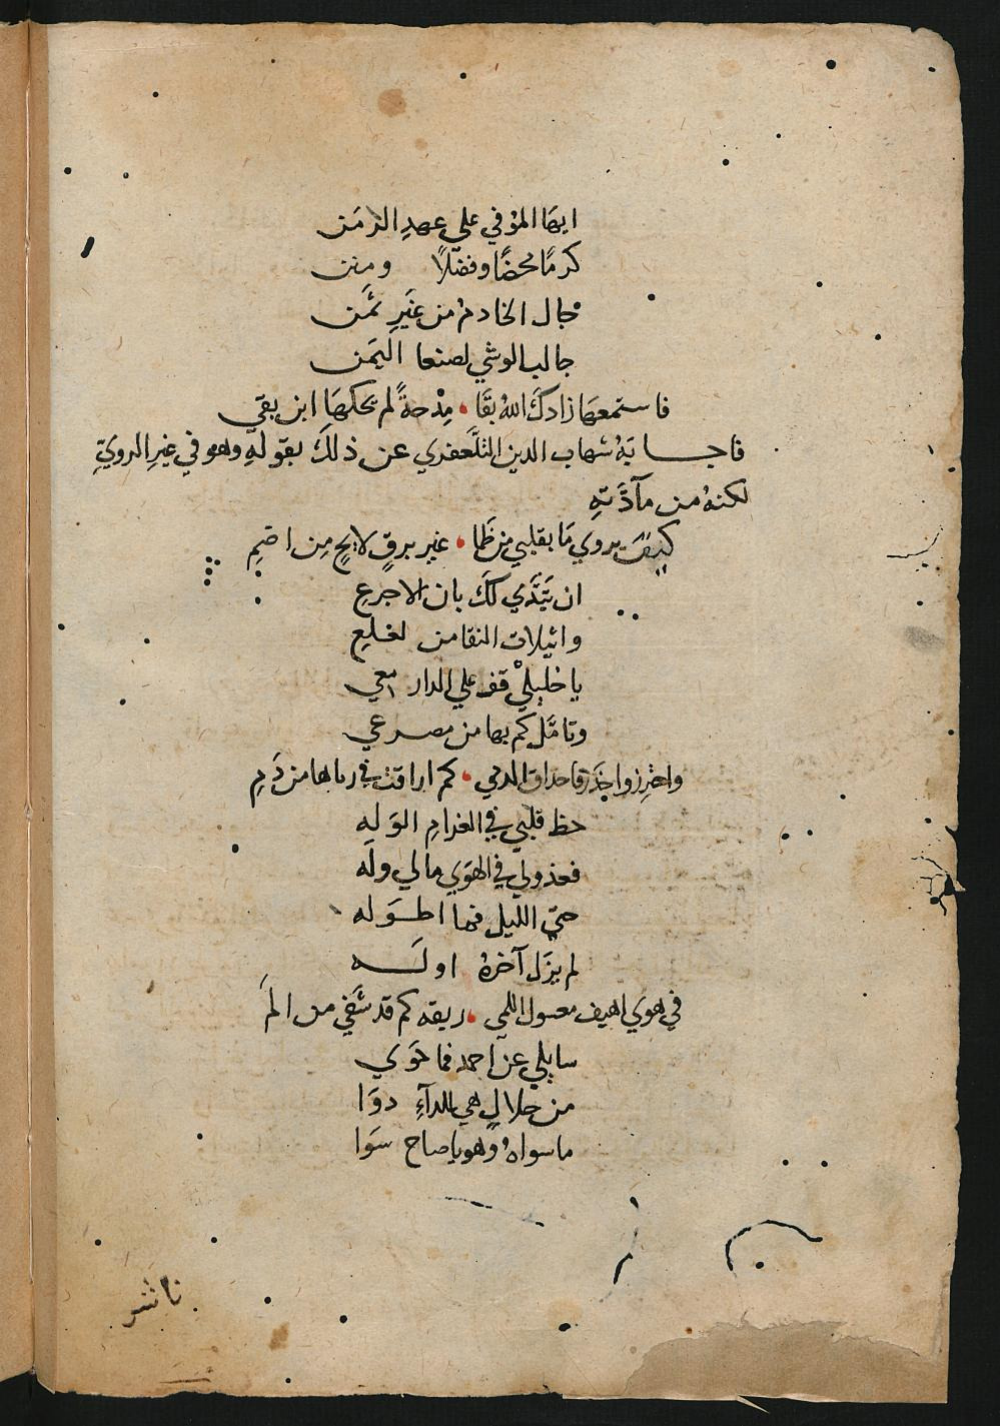 ايهَا المُوْفي علي عهدِ الزمَن
كرمًا محضًا وفضلًا ومنن
جال الخادمُ من غيَرِ ثمَن
جالب الوشي لصنعا اليَمن
فاستمعهَا زادكَ اللهُ بقَا • مِدْحةً لم يحكهَا ابن بقي
فاجابَهُ شهاب الدين التلَّعفري عن ذلكَ بقولهِ وهو في غيرِ الرويِّ
لكنهُ من مآدَّتهِ
كيفَ يروي مَا بقلبي من ظَما • غير برقٍ لايحٍ مِن اضمِ
ان تَبَدَّي لكَ بان الاجرعِ
واثيلات النقا من لعلعِ
يا خليلَيْ قف علي الدار معي
وتامَّل كم بها من مصرعي
واحترِز واحذَر فاحداق الدمي • كم اراقت في رباها من دَمِ
حظ قلبي في الغرامِ الوَلهِ
فعذولي في الهوَي مالي ولَه
حتي الليل فما اطوَله
لم يزَل آخرهُ اولَه
في هوَي اهيف معسول اللمي • ريقه كم قد شفَي من الَم
سايلي عن احمد فما حَوَي
من خلالٍ هي للدآءِ دوَا
ما سواهُ وهو يا صاح سَوا
ناشر